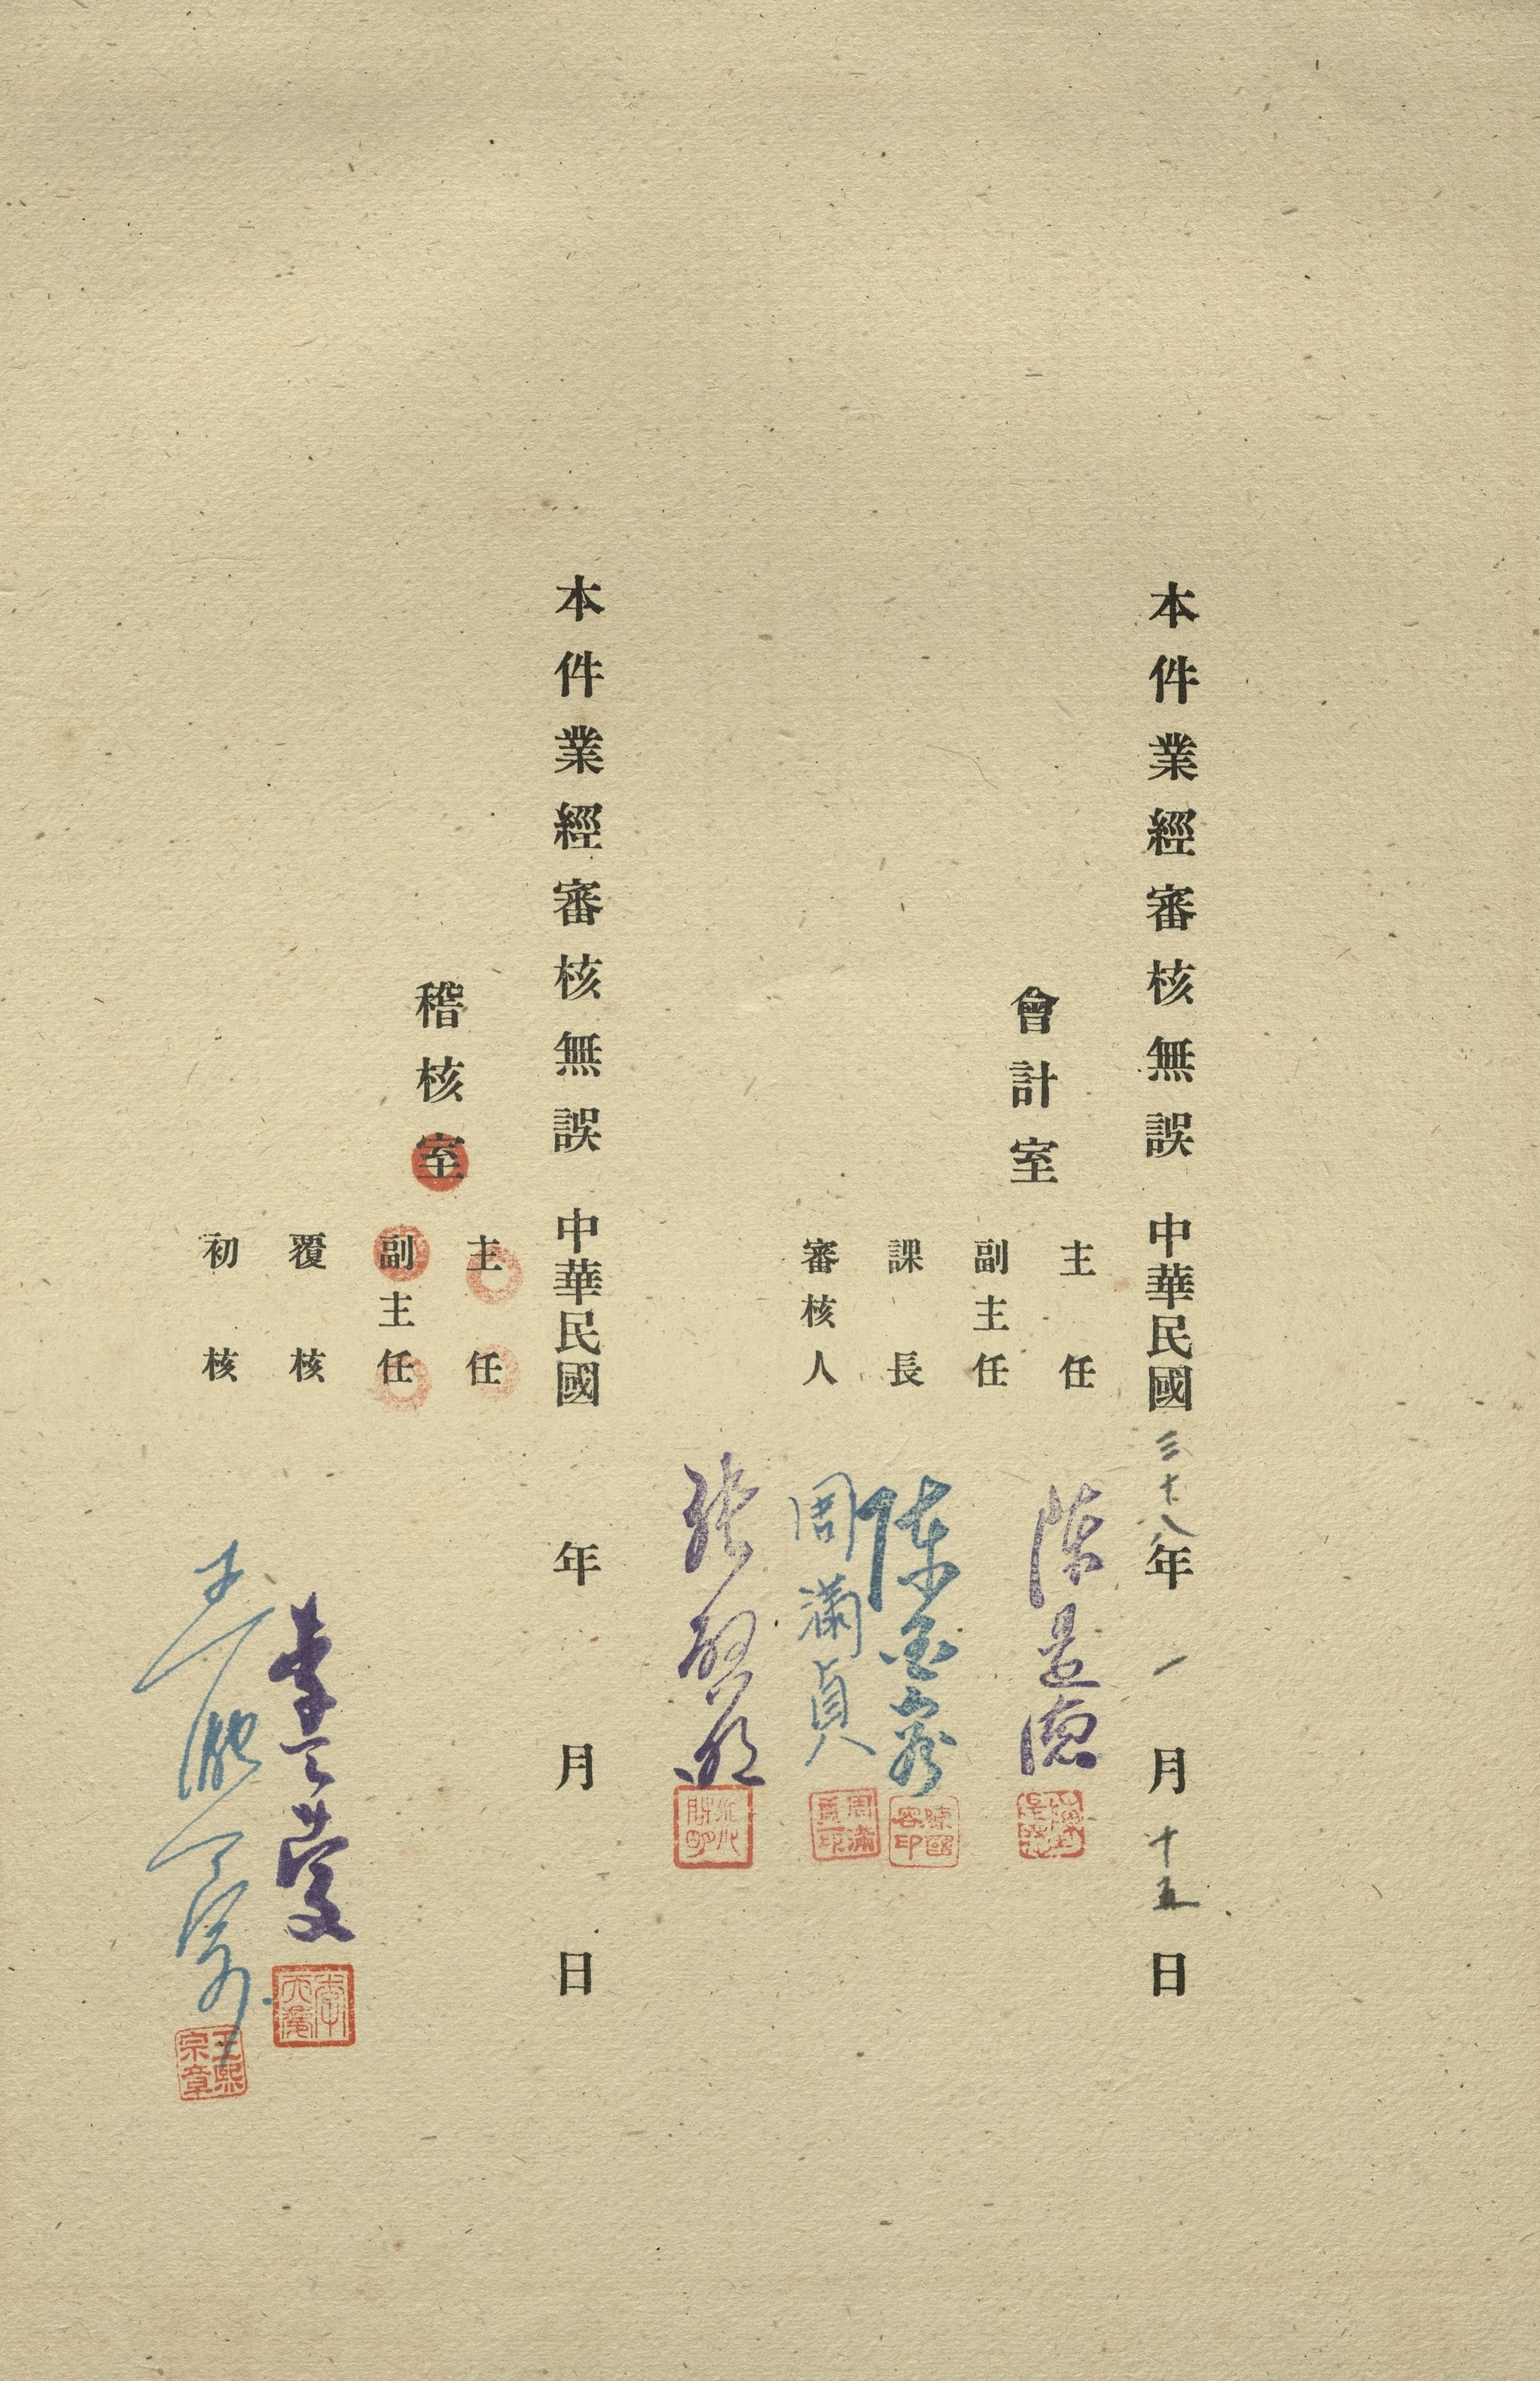 本件業經審核無誤 中華民國三十八年一月十五日
會計室
主任 陳
副主任
課長 陳
陳國容印
審核人 周滿貞
周滿貞印
張
本件業經審核無誤 中華民國 年 月 日
稽核室
主任
副主任
覆核 李
初核 王熙宗
王熙宗章